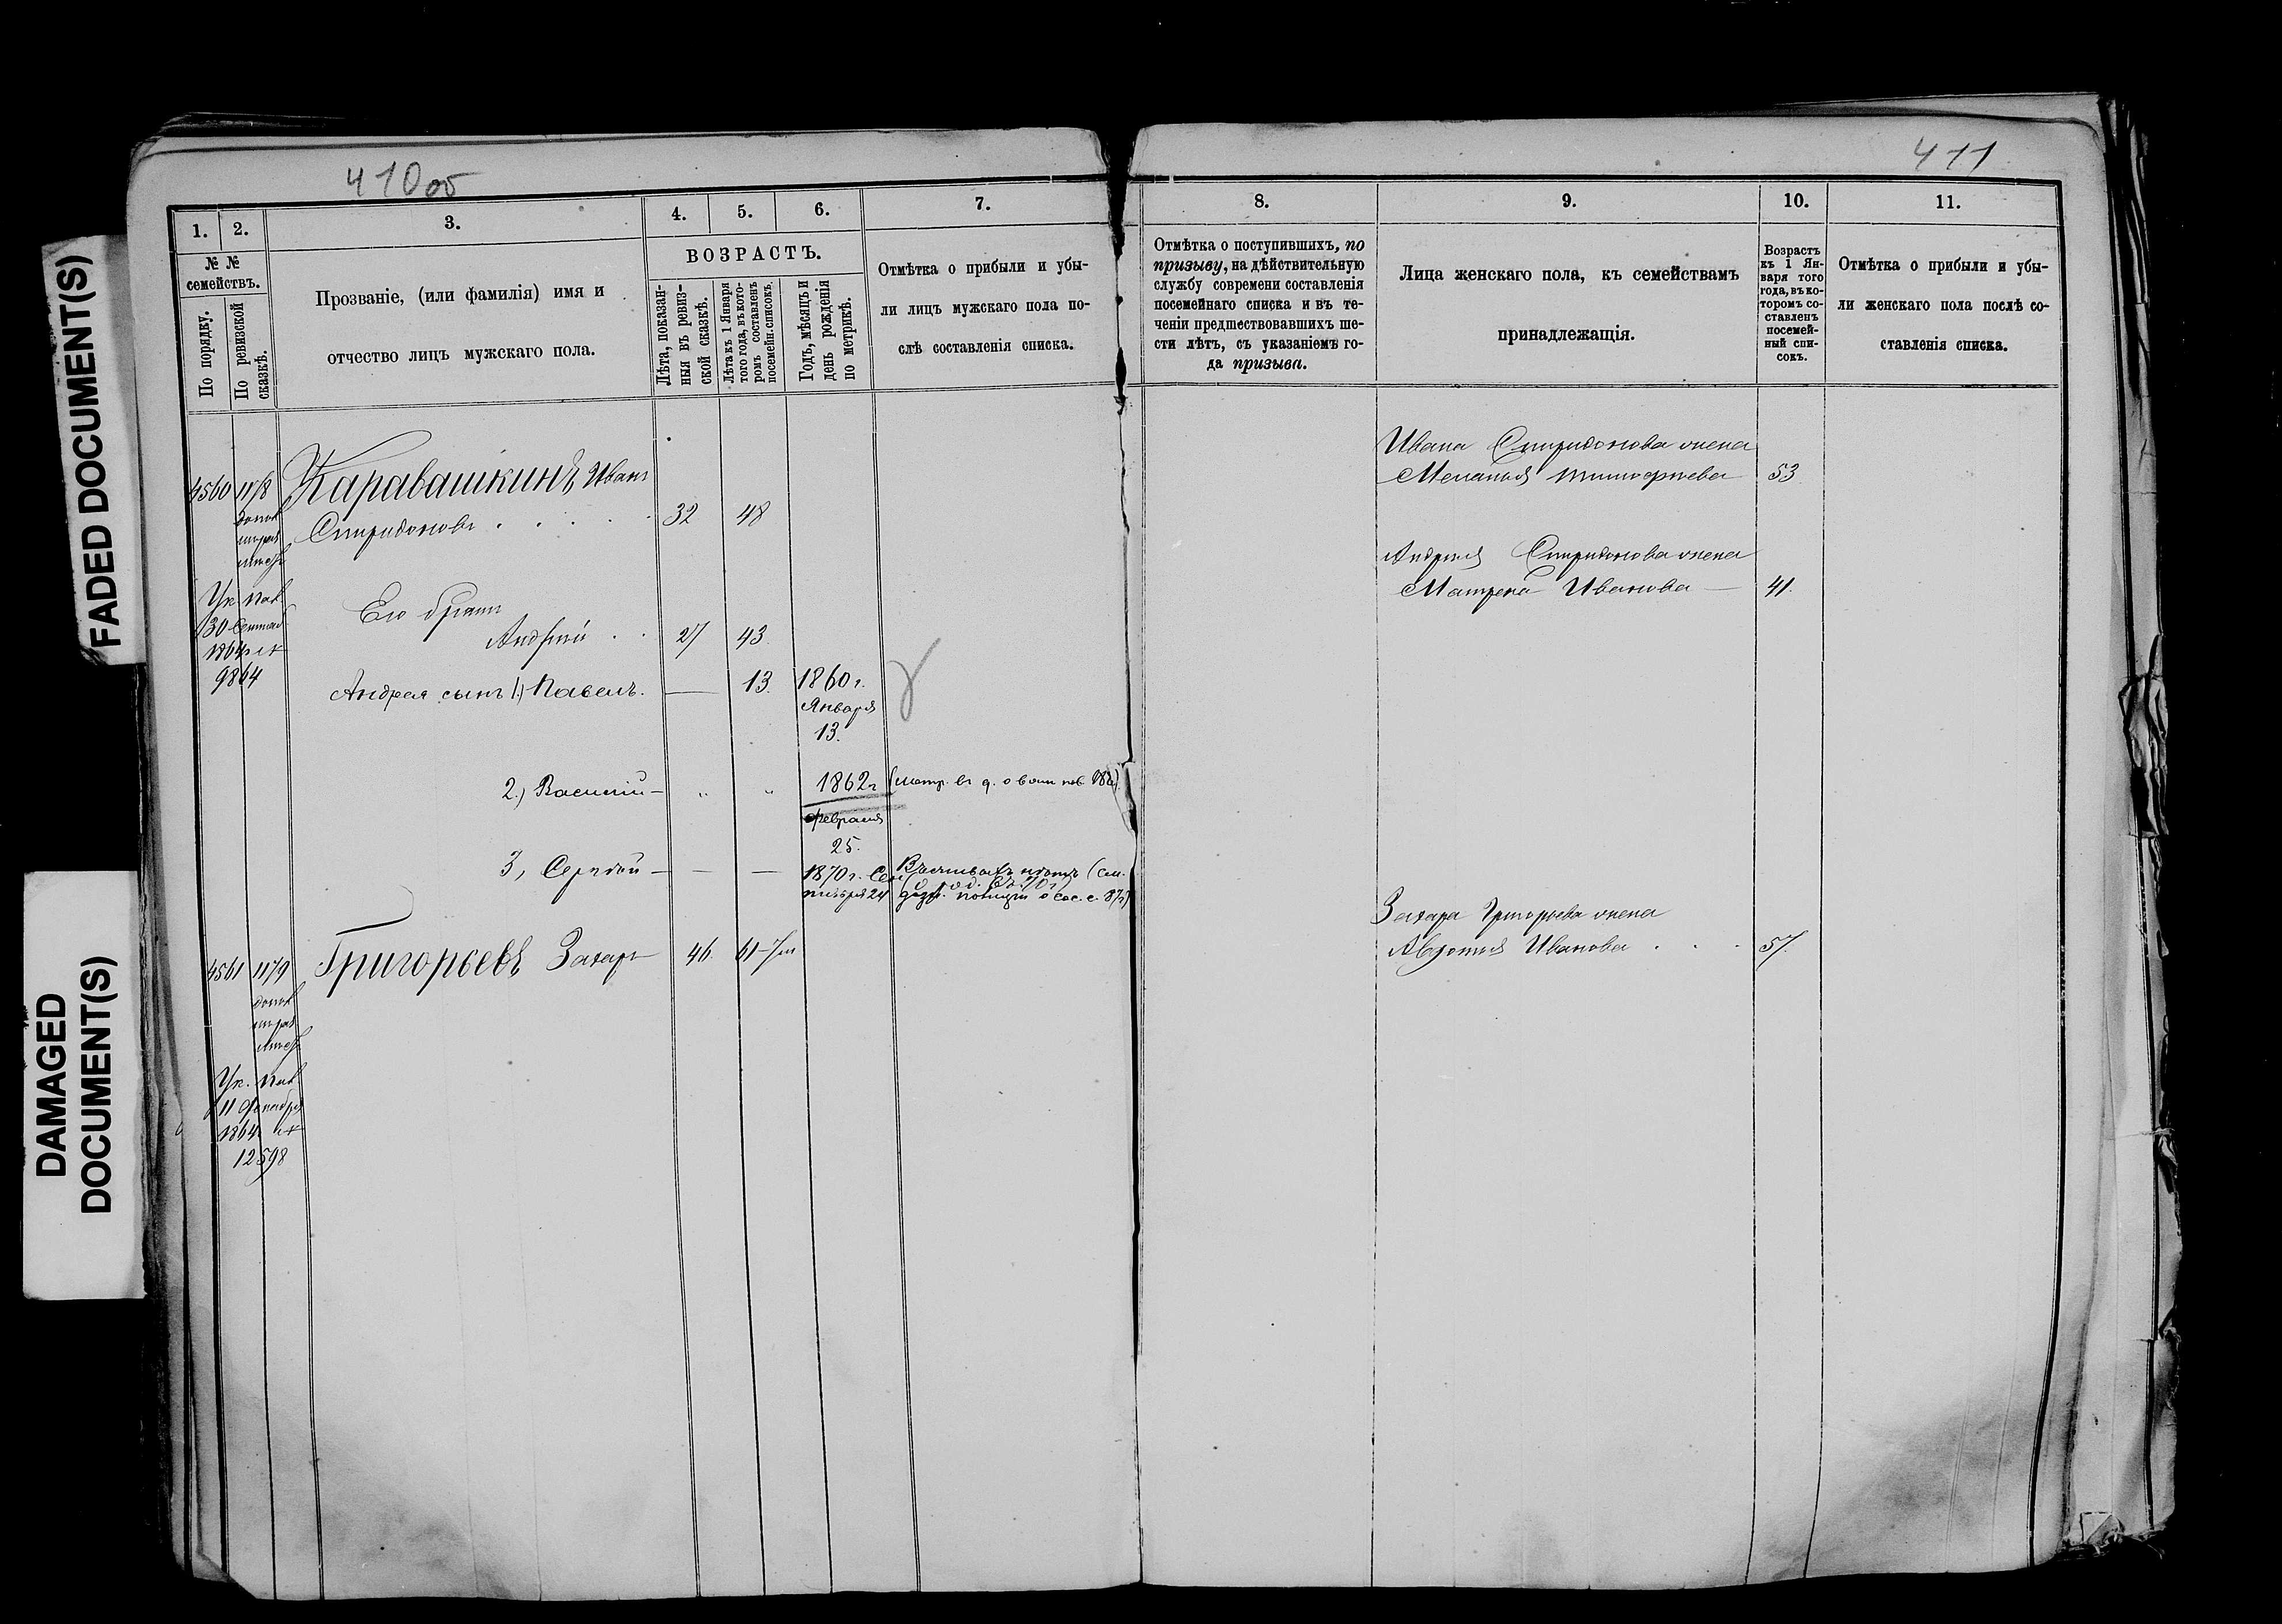 FADED DOCUMENT(S)
DAMAGED
DOCUMENT(S)
410об
1. 2. 3. 4. 5. 6. 7.
№ №
семействъ.
По порядку.
По ревизской
сказкѣ.
Прозваніе, (или фамилія) имя и
отчество лицъ мужскаго пола.
ВОЗРАСТЪ.
Лѣта, показан-
ныя въ ревиз-
ской сказкѣ.
Лѣта къ 1 Января
того года, въ кото-
ромъ составленъ
посемейн. списокъ.
Годъ, мѣсяцъ и
день рожденія
по метрикѣ.
Отмѣтка о прибыли и убы-
ли лицъ мужскаго пола по-
слѣ составленія списка.
4560 1178 Каравашкинъ Иванъ
Спиридоновъ 32 48
Ук. Пал.
30 Сентяб
1864 г.
9864
Его братъ
Андрей 27 43
Андрея сынъ 1.) Павелъ. — 13. 1860 г.
Января
13.
2.) Василій — „ „ 1862 г (метр. въ д. о
Февраля
25.
3, Сергѣй — — — 1870 г. Сен
тября 24
4561 1179 Григорьевъ Захаръ 46. 61
Ук. Пал.
1864
12598
411
8. 9. 10. 11.
Отмѣтка о поступившихъ, по
призыву, на дѣйствительную
службу современи составленія
посемейнаго списка и въ те-
ченіи предшествовавшихъ ше-
сти лѣтъ, съ указаніемъ го-
да призыва.
Лица женскаго пола, къ семействамъ
принадлежащія.
Возрастъ
къ 1 Ян-
варя того
года, въ ко-
торомъ со-
ставленъ
посемей-
ный спи-
сокъ.
Отмѣтка о прибыли и убы-
ли женскаго пола послѣ со-
ставленія списка.
Ивана Спиридонова жена
Меланья Тимофѣева 53
Андрея Спиридонова жена
Матрена Иванова — 41.
Захара Григорьева жена
Авдотья Иванова . . . 57.